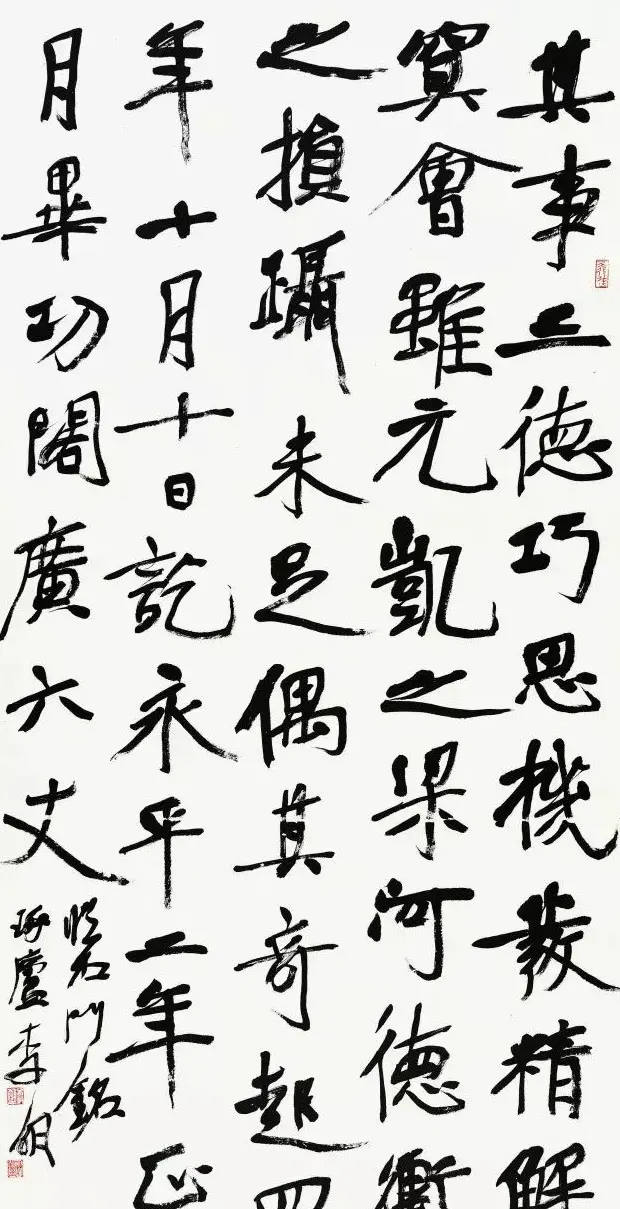 其事三德巧思機發精解
冥會雖元凱之梁河德衡
之損躡未足偶其奇起四
年十月十日訖永平二年正
月畢功閣廣六丈
臨石門銘
琢廬李